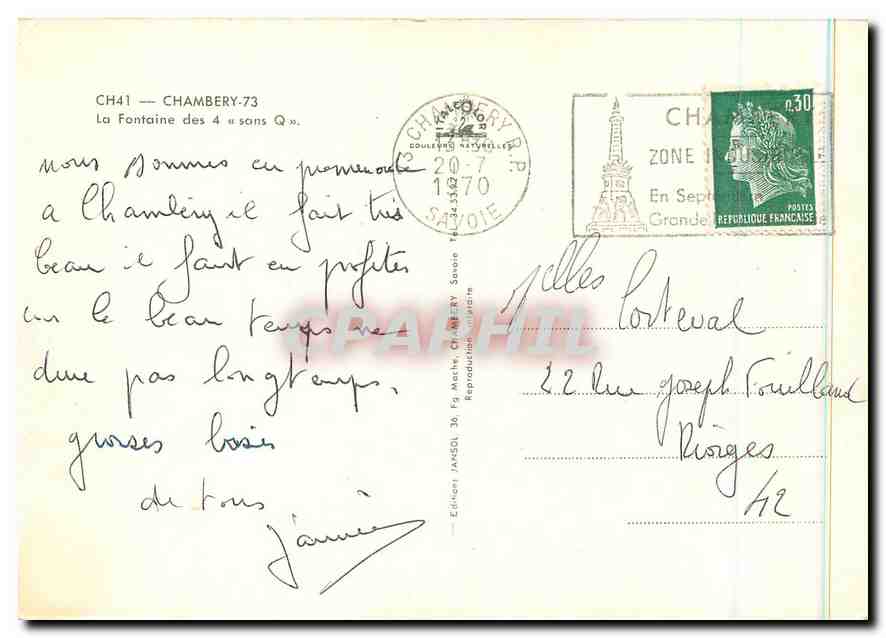 CH41 — CHAMBERY-73
La Fontaine des 4 « sans Q ».
nous sommes en promenade
a Chambéry il fait très
beau il faut en profiter
car le beau temps ne
dure pas longtemps.
grosses bises
de tous
KALCOLOR
COULEURS NATURELLES
73 CHAMBERY R.P.
20-7
1970
SAVOIE
ZONE
En Septembre
Grande
0,30
POSTES
REPUBLIQUE FRANCAISE
Editions JANSOL 36, Fg Mache, CHAMBERY Savoie Tel.
Reproduction interdite
CPAPHIL
Melles Corteval
22 Rue Joseph Fouilland
Riorges
42